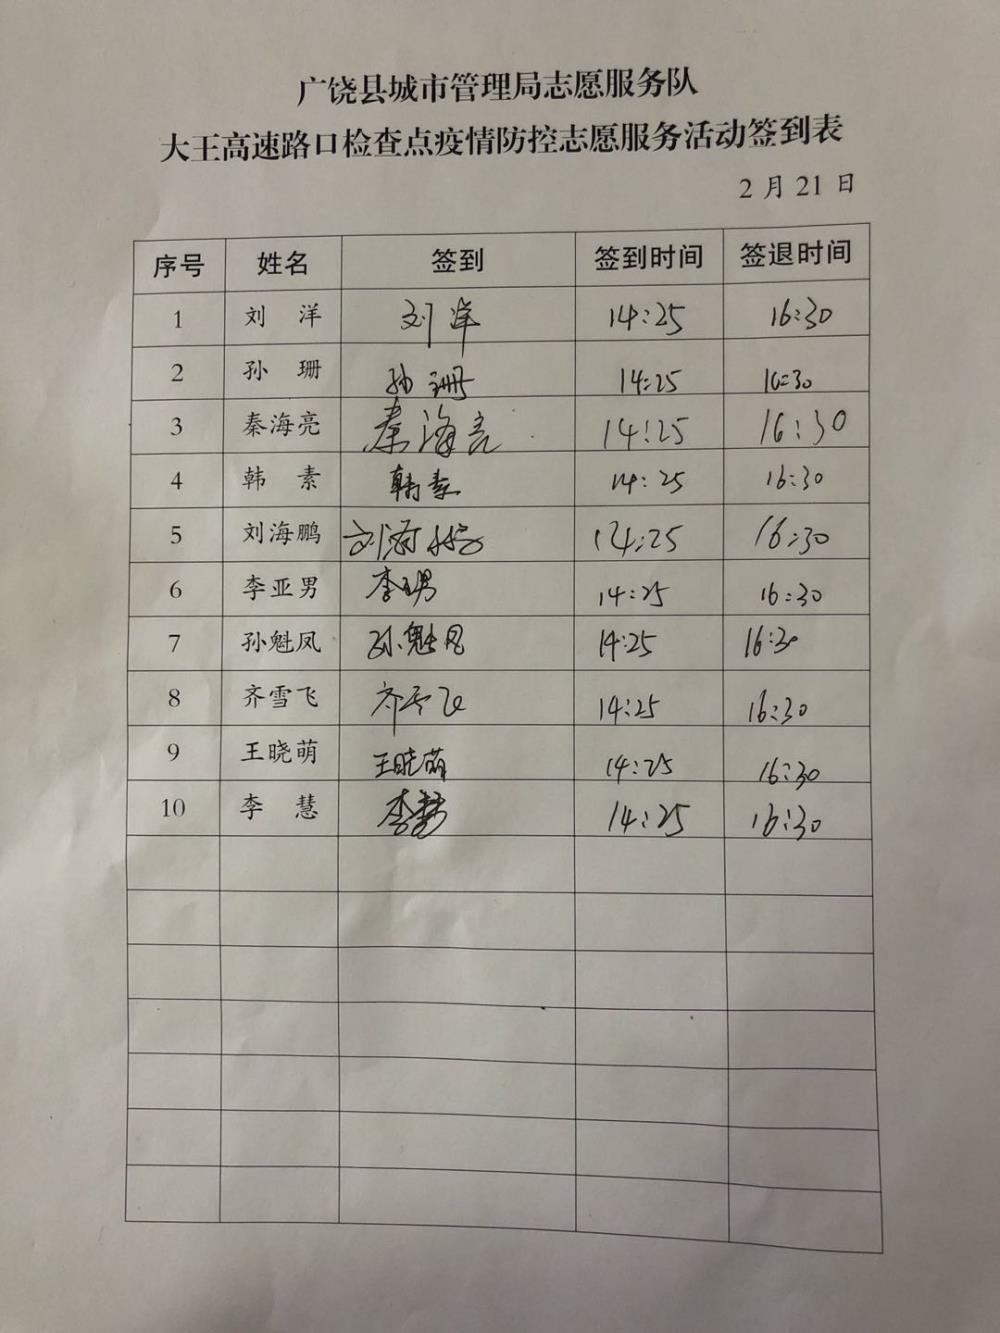 广饶县城市管理局志愿服务队
大王高速路口检查点疫情防控志愿服务活动签到表
2月21日
序号 姓名 签到 签到时间 签退时间
1 刘 洋 刘洋 14:25 16:30
2 孙 珊 孙珊 14:25 16:30
3 秦海亮 秦海亮 14:25 16:30
4 韩 素 韩素 14:25 16:30
5 刘海鹏 刘海鹏 14:25 16:30
6 李亚男 李亚男 14:25 16:30
7 孙魁凤 孙魁凤 14:25 16:30
8 齐雪飞 齐雪飞 14:25 16:30
9 王晓萌 王晓萌 14:25 16:30
10 李 慧 李慧 14:25 16:30